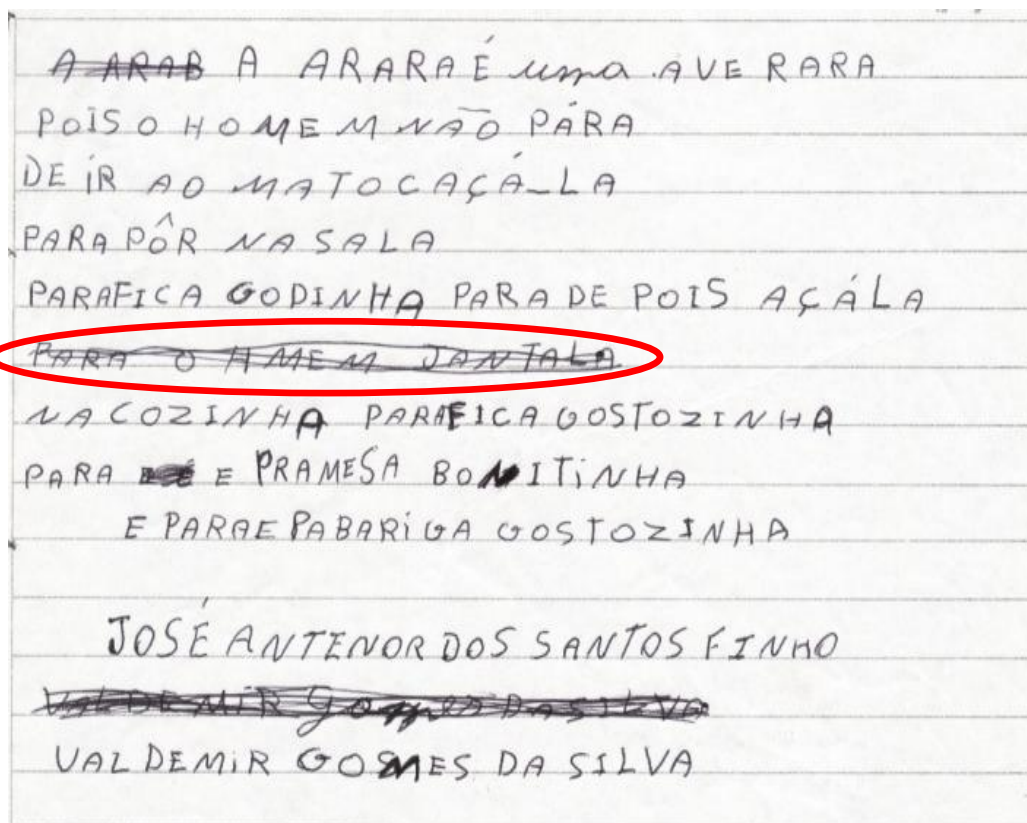 A ARAB A ARARA É uma AVE RARA
POIS O HOMEM NÃO PÁRA
DE IR AO MATO CAÇÁ-LA
PARA PÔR NA SALA
PARAFICA GODINHA PARA DE POIS AÇÁLA
PARA O HMEM JANTALA
NA COZINHA PARAFICA GOSTOZINHA
PARA E PRAMESA BONITINHA
E PARAE PABARIGA GOSTOZINHA
JOSÉ ANTENOR DOS SANTOS FINHO
VALDEMIR Gomes DASILVA
VALDEMIR GOMES DA SILVA